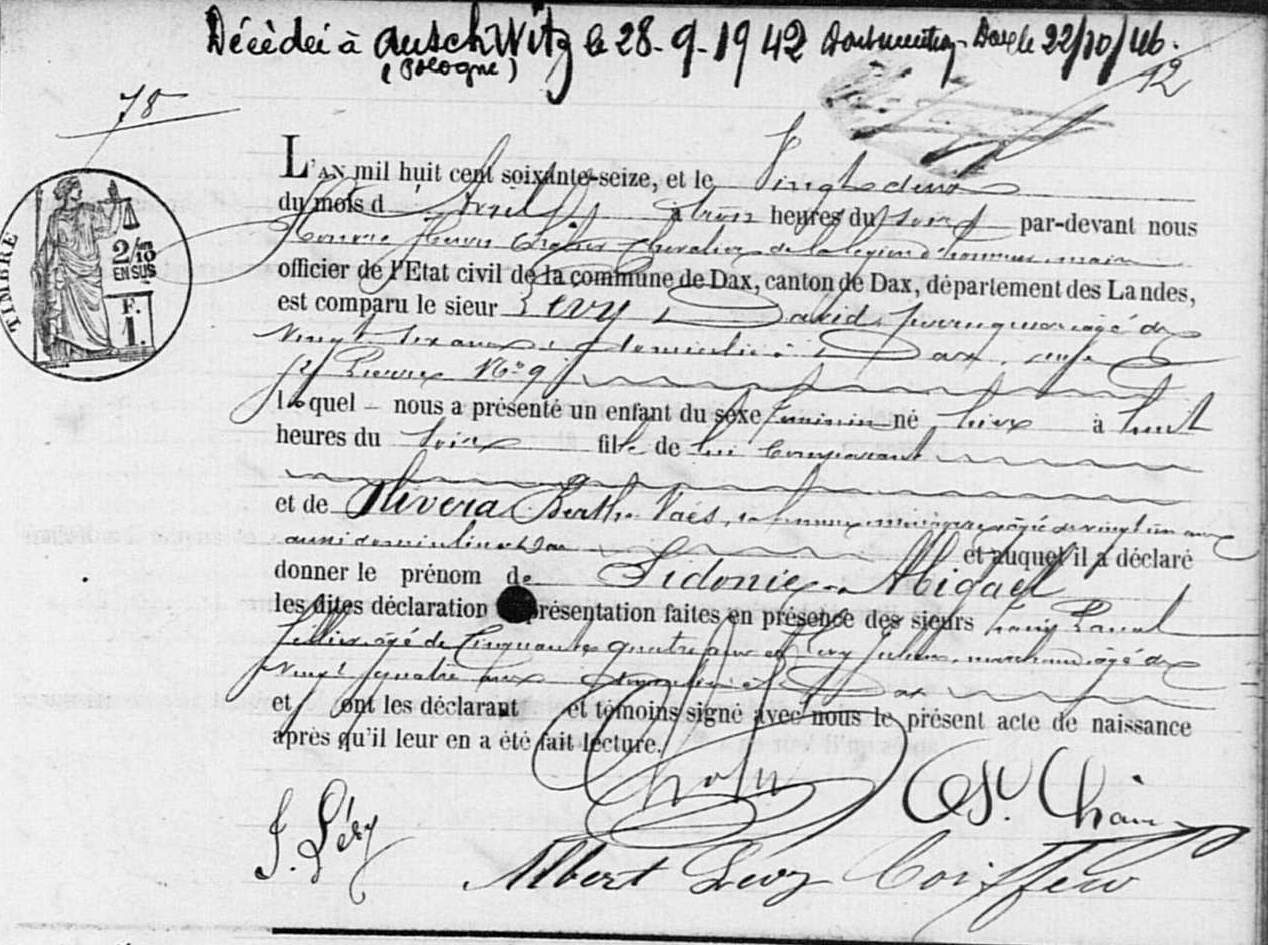 Décédée à Auschwitz le 28-9-1942 Dax le 22/10/46.
(Pologne)
12
78
TIMBRE
2/10
EN SUS
F.
1.
L'AN mil huit cent soixante-seize, et le Vingt deux
du mois d'Avril à trois heures du soir par-devant nous
chevalier de la légion d'honneur, maire
officier de l'Etat civil de la commune de Dax, canton de Dax, département des Landes,
est comparu le sieur Levy David, âgé de
vingt six ans, domicilié à Dax,
St Pierre No 9
lequel nous a présenté un enfant du sexe féminin né hier à huit
heures du soir fille de lui comparant
et de Olivera Berthe Vaës, sa femme, ménagère, âgée de vingt un ans
aussi domiciliée à Dax et auquel il a déclaré
donner le prénom de Sidonie Abigael
les dites déclaration présentation faites en présence des sieurs
âgé de Cinquante quatre ans et Levy Julien, marchand, âgé de
vingt quatre ans domiciliés à Dax
et ont les déclarant et témoins signé avec nous le présent acte de naissance
après qu'il leur en a été fait lecture.
J. Lévy
Albert Levy Coiffeur